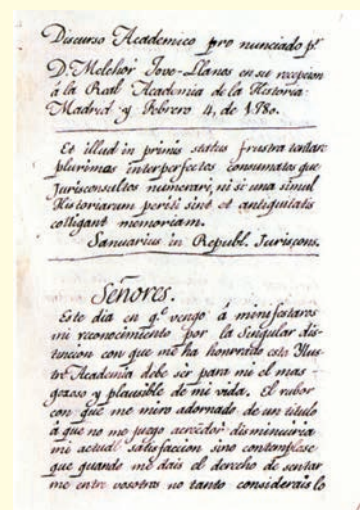 Discurso Academico pro nunciado pr.
D. Melchor Jove-Llanos en su recepcion
á la Real Academia de la Historia
Madrid y Febrero 4, de 1780.
Et illud in primis status frustra tentare
plurimas interperfectos consumatosque
Jurisconsultos numerari, ni si una simul
Historiarum periti sint et antiquitatis
colligant memoriam.
Sanuarius in Republ. Juriscons.
Señores.
Este dia en qe. vengo á monifestaros
mi reconocimiento por la Singular dis-
tincion con que me ha honrrado esta Ylus-
tre Academia debe ser para mi el mas
gozoso y plausible de mi vida. El rubor
con que me miro adornado de un titulo
á que no me juzgo acreedor disminuiria
mi actual satisfacion sino contemplase
que quando me dais el derecho de sentar
me entre vosotros no tanto considerais lo